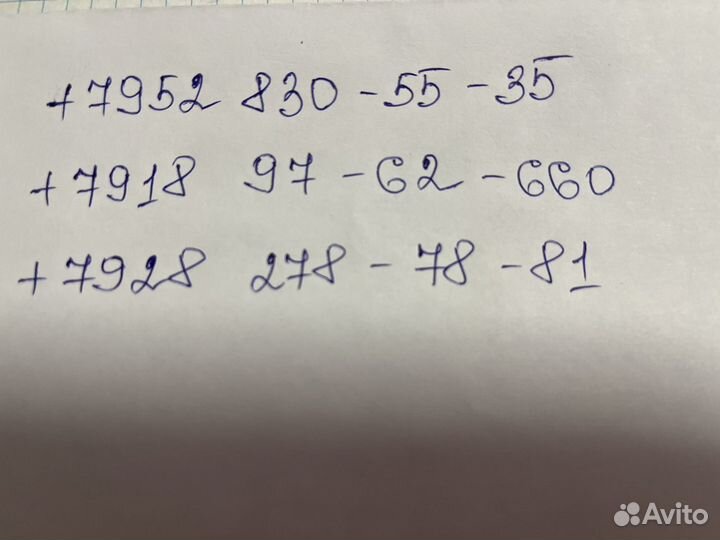 +7952 830-55-35
+7918 97-62-660
+7928 278-78-81
Avito